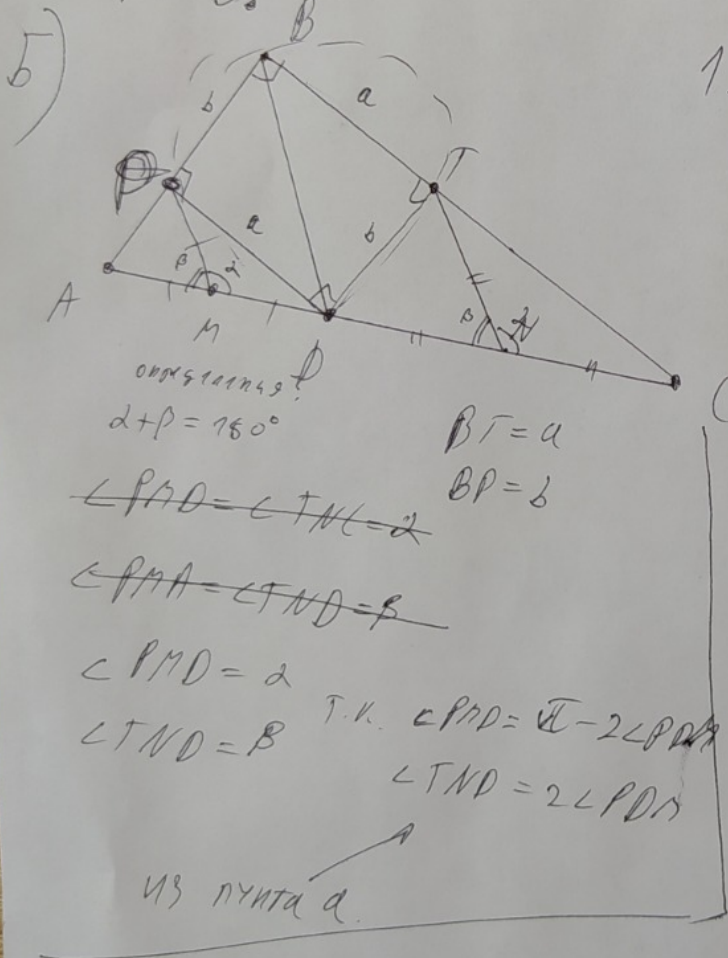 б)
B
b
a
P
T
a
b
β
α
β
A
M
D
N
C
α+β=180°
BT=a
BP=b
∠PMD=∠TNC=α
∠PMA=∠TND=β
∠PMD=α
∠TND=β
т.к. ∠PMD=π-2∠PDM
∠TND=2∠PDM
из пункта а.